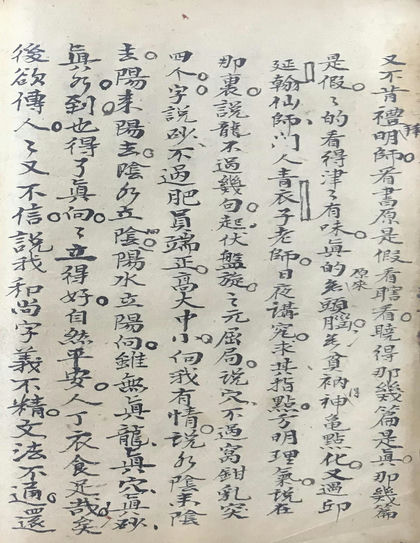 又不肯禮拜明師看書原是假看瞎看曉得那幾篇是真那幾篇
是假々的看得津々有味真的原來無頭無腦貧衲得神龜點化又遇邱
延翰仙師門人青衣子老師日夜講究求其指點方明理氣說在
那裏說龍不過幾句起伏盤旋之元屈局說穴不過窩鉗乳突
四个字說砂不過肥員端正高大中小向我有情說水陰來陰
去陽來陽去陰水立陰向陽水立陽向雖無真龍真穴真砂
真水到也得了真向々立得好自然平安人丁衣食足哉矣
後欲傳人々又不信說我和尚字義不精文法不通還